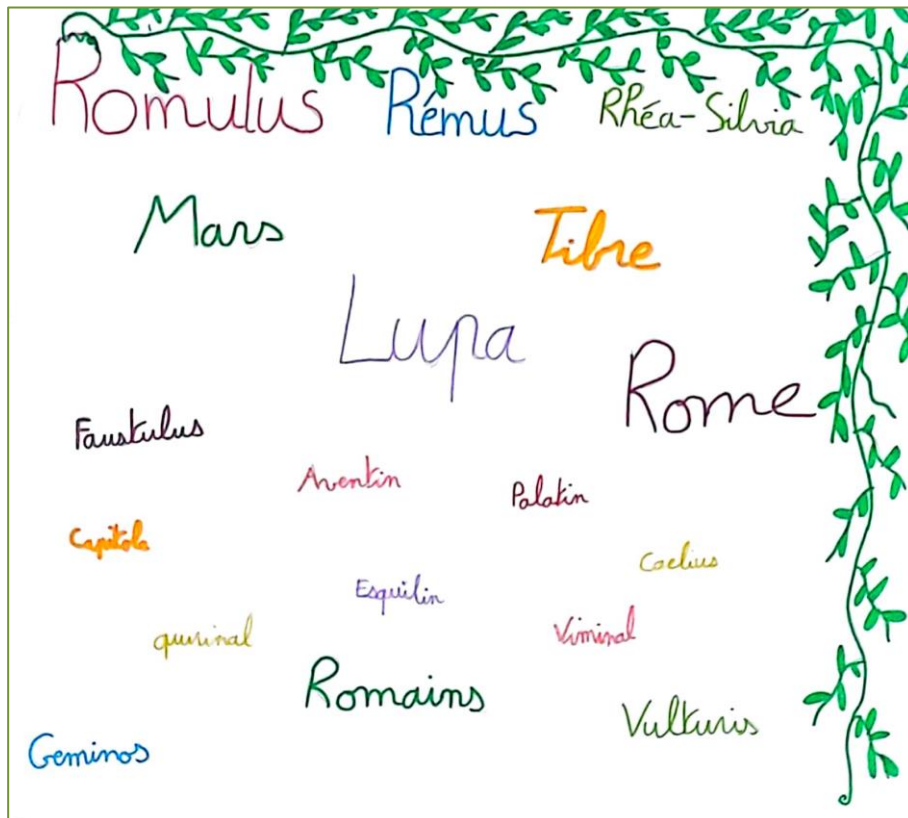 Romulus Rémus Rhéa-Silvia
Mars Tibre
Lupa
Rome
Faustulus
Aventin Palatin
Capitole
Coelius
Esquilin
quirinal Viminal
Romains
Vulturis
Geminos